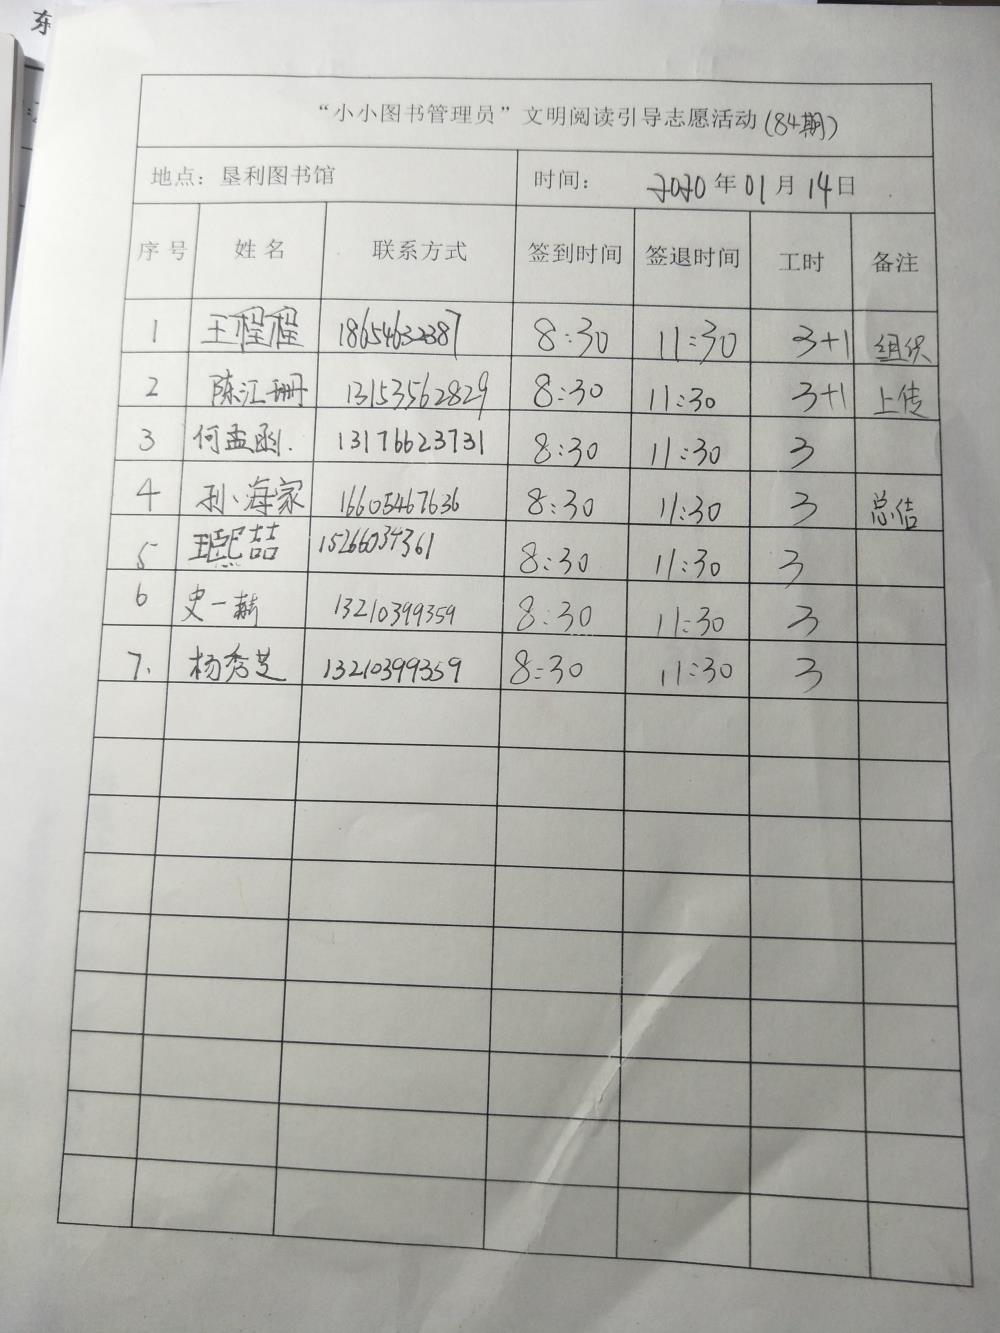 东
"小小图书管理员"文明阅读引导志愿活动(84期)
地点：垦利图书馆 时间： 2020年01月14日
序号 姓名 联系方式 签到时间 签退时间 工时 备注
1 王程程 18654632387 8:30 11:30 3+1 组织
2 陈江珊 13153562829 8:30 11:30 3+1 上传
3 何孟函. 13176623731 8:30 11:30 3
4 孙海家 16605467636 8:30 11:30 3 总结
5 王熙喆 15266034361 8:30 11:30 3
6 史一赫 13210399359 8:30 11:30 3
7. 杨秀芝 13210399359 8:30 11:30 3